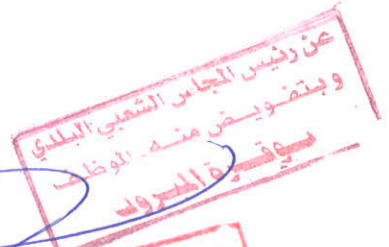 عن رئيس المجلس الشعبي البلدي
وبتفويض منه. الموظف
بوقرة المبروك